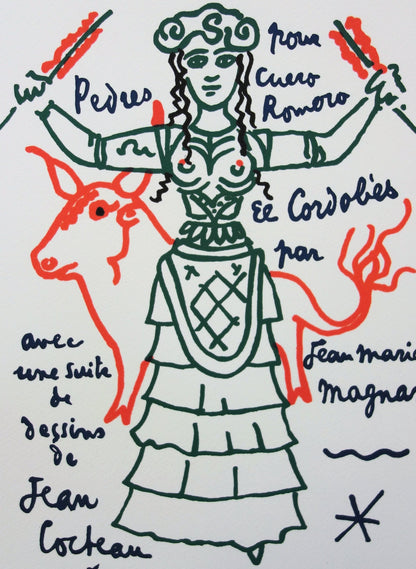 pour
Pedres
Cuero
Romero
El Cordobés
par
avec
une suite
de
dessins
de
Jean
Cocteau
Jean Marie
Magnan